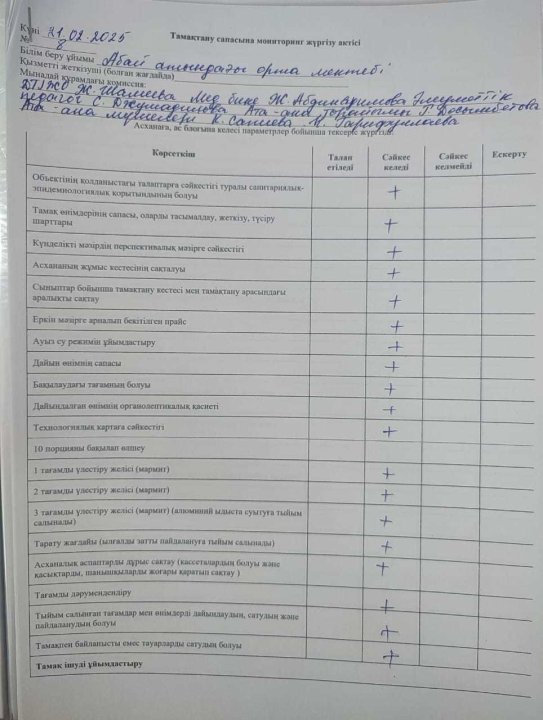 Тамақтану сапасына мониторинг жүргізу актісі
Күні 21.02.2025
№ 8
Білім беру ұйымы Абай атындағы орта мектебі
Қызметті жеткізуші (болған жағдайда)
Мынадай құрамдағы комиссия:
Ж. Шалиева Мед бике Ж. Абдикаримова Әлеуметтік
педагог С. Джумадилова Ата-ана төрайымы Г. Досымбетова
Ата-ана мүшелері К. Сапиева
Асханаға, ас блогына келесі параметрлер бойынша тексеріс жүргізді
Көрсеткіш Талап етіледі Сәйкес келеді Сәйкес келмейді Ескерту
Объектінің қолданыстағы талаптарға сәйкестігі туралы санитариялық-
эпидемиологиялық қорытындының болуы +
Тамақ өнімдерінің сапасы, оларды тасымалдау, жеткізу, түсіру
шарттары +
Күнделікті мәзірдің перспективалық мәзірге сәйкестігі +
Асхананың жұмыс кестесінің сақталуы +
Сыныптар бойынша тамақтану кестесі мен тамақтану арасындағы
аралықты сақтау +
Еркін мәзірге арналып бекітілген прайс +
Ауыз су режимін ұйымдастыру +
Дайын өнімнің сапасы +
Бақылаудағы тағамның болуы +
Дайындалған өнімнің органолептикалық қасиеті +
Технологиялық картаға сәйкестігі +
10 порцияны бақылап өлшеу
1 тағамды үлестіру желісі (мармит) +
2 тағамды үлестіру желісі (мармит) +
3 тағамды үлестіру желісі (мармит) (алюминий ыдыста суытуға тыйым
салынады) +
Тарату жағдайы (ылғалды затты пайдалануға тыйым салынады) +
Асханалық аспаптарды дұрыс сақтау (кассеталардың болуы және
қасықтарды, шанышқыларды жоғары қаратып сақтау ) +
Тағамды дәрумендендіру
+
Тыйым салынған тағамдар мен өнімдерді дайындаудың, сатудың және
пайдаланудың болуы +
Тамақпен байланысты емес тауарларды сатудың болуы +
Тамақ ішуді ұйымдастыру